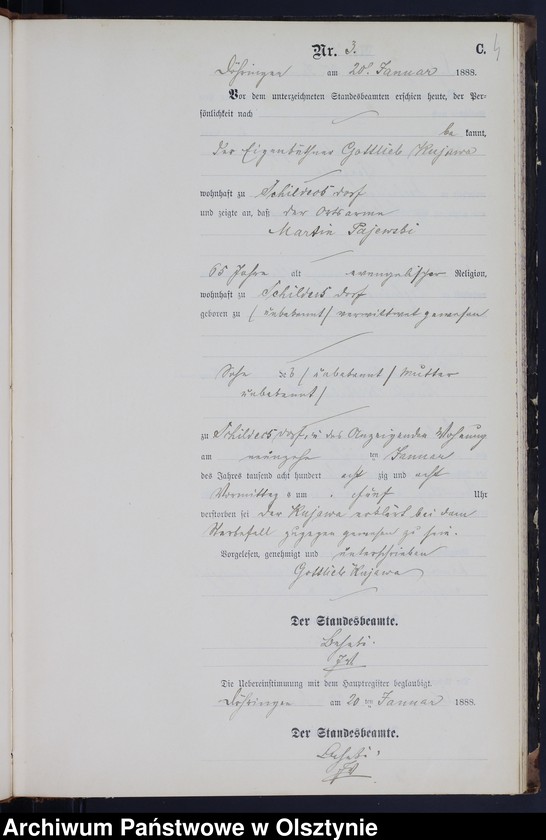 Nr. 3. C. 4
Döhringen am 20t Januar 1888.
Vor dem unterzeichneten Standesbeamten erschien heute, der Per-
sönlichkeit nach
be kannt,
der Eigenkäthner Gottlieb Kujawa
wohnhaft zu Schildeck dorf
und zeigte an, daß der Ortsarme
Martin Pajewski
65 Jahre alt evangelischer Religion,
wohnhaft zu dorf
geboren zu /unbekannt/ verwittwet gewesen
Sohn des /unbekannt/ Mutter
unbekannt/
zu dorf, in des Anzeigenden Wohnung
am neunzehn ten Januar
des Jahres tausend acht hundert acht zig und acht
Vormittag s um fünf Uhr
verstorben sei der Kujawa erklärt bei dem
Sterbefall zugegen gewesen zu sein.
Vorgelesen, genehmigt und unterschrieben
Gottlieb Kujawa
Der Standesbeamte.
Die Uebereinstimmung mit dem Hauptregister beglaubigt.
Döhringen am 20 ten Januar 1888.
Der Standesbeamte.
Archiwum Państwowe w Olsztynie